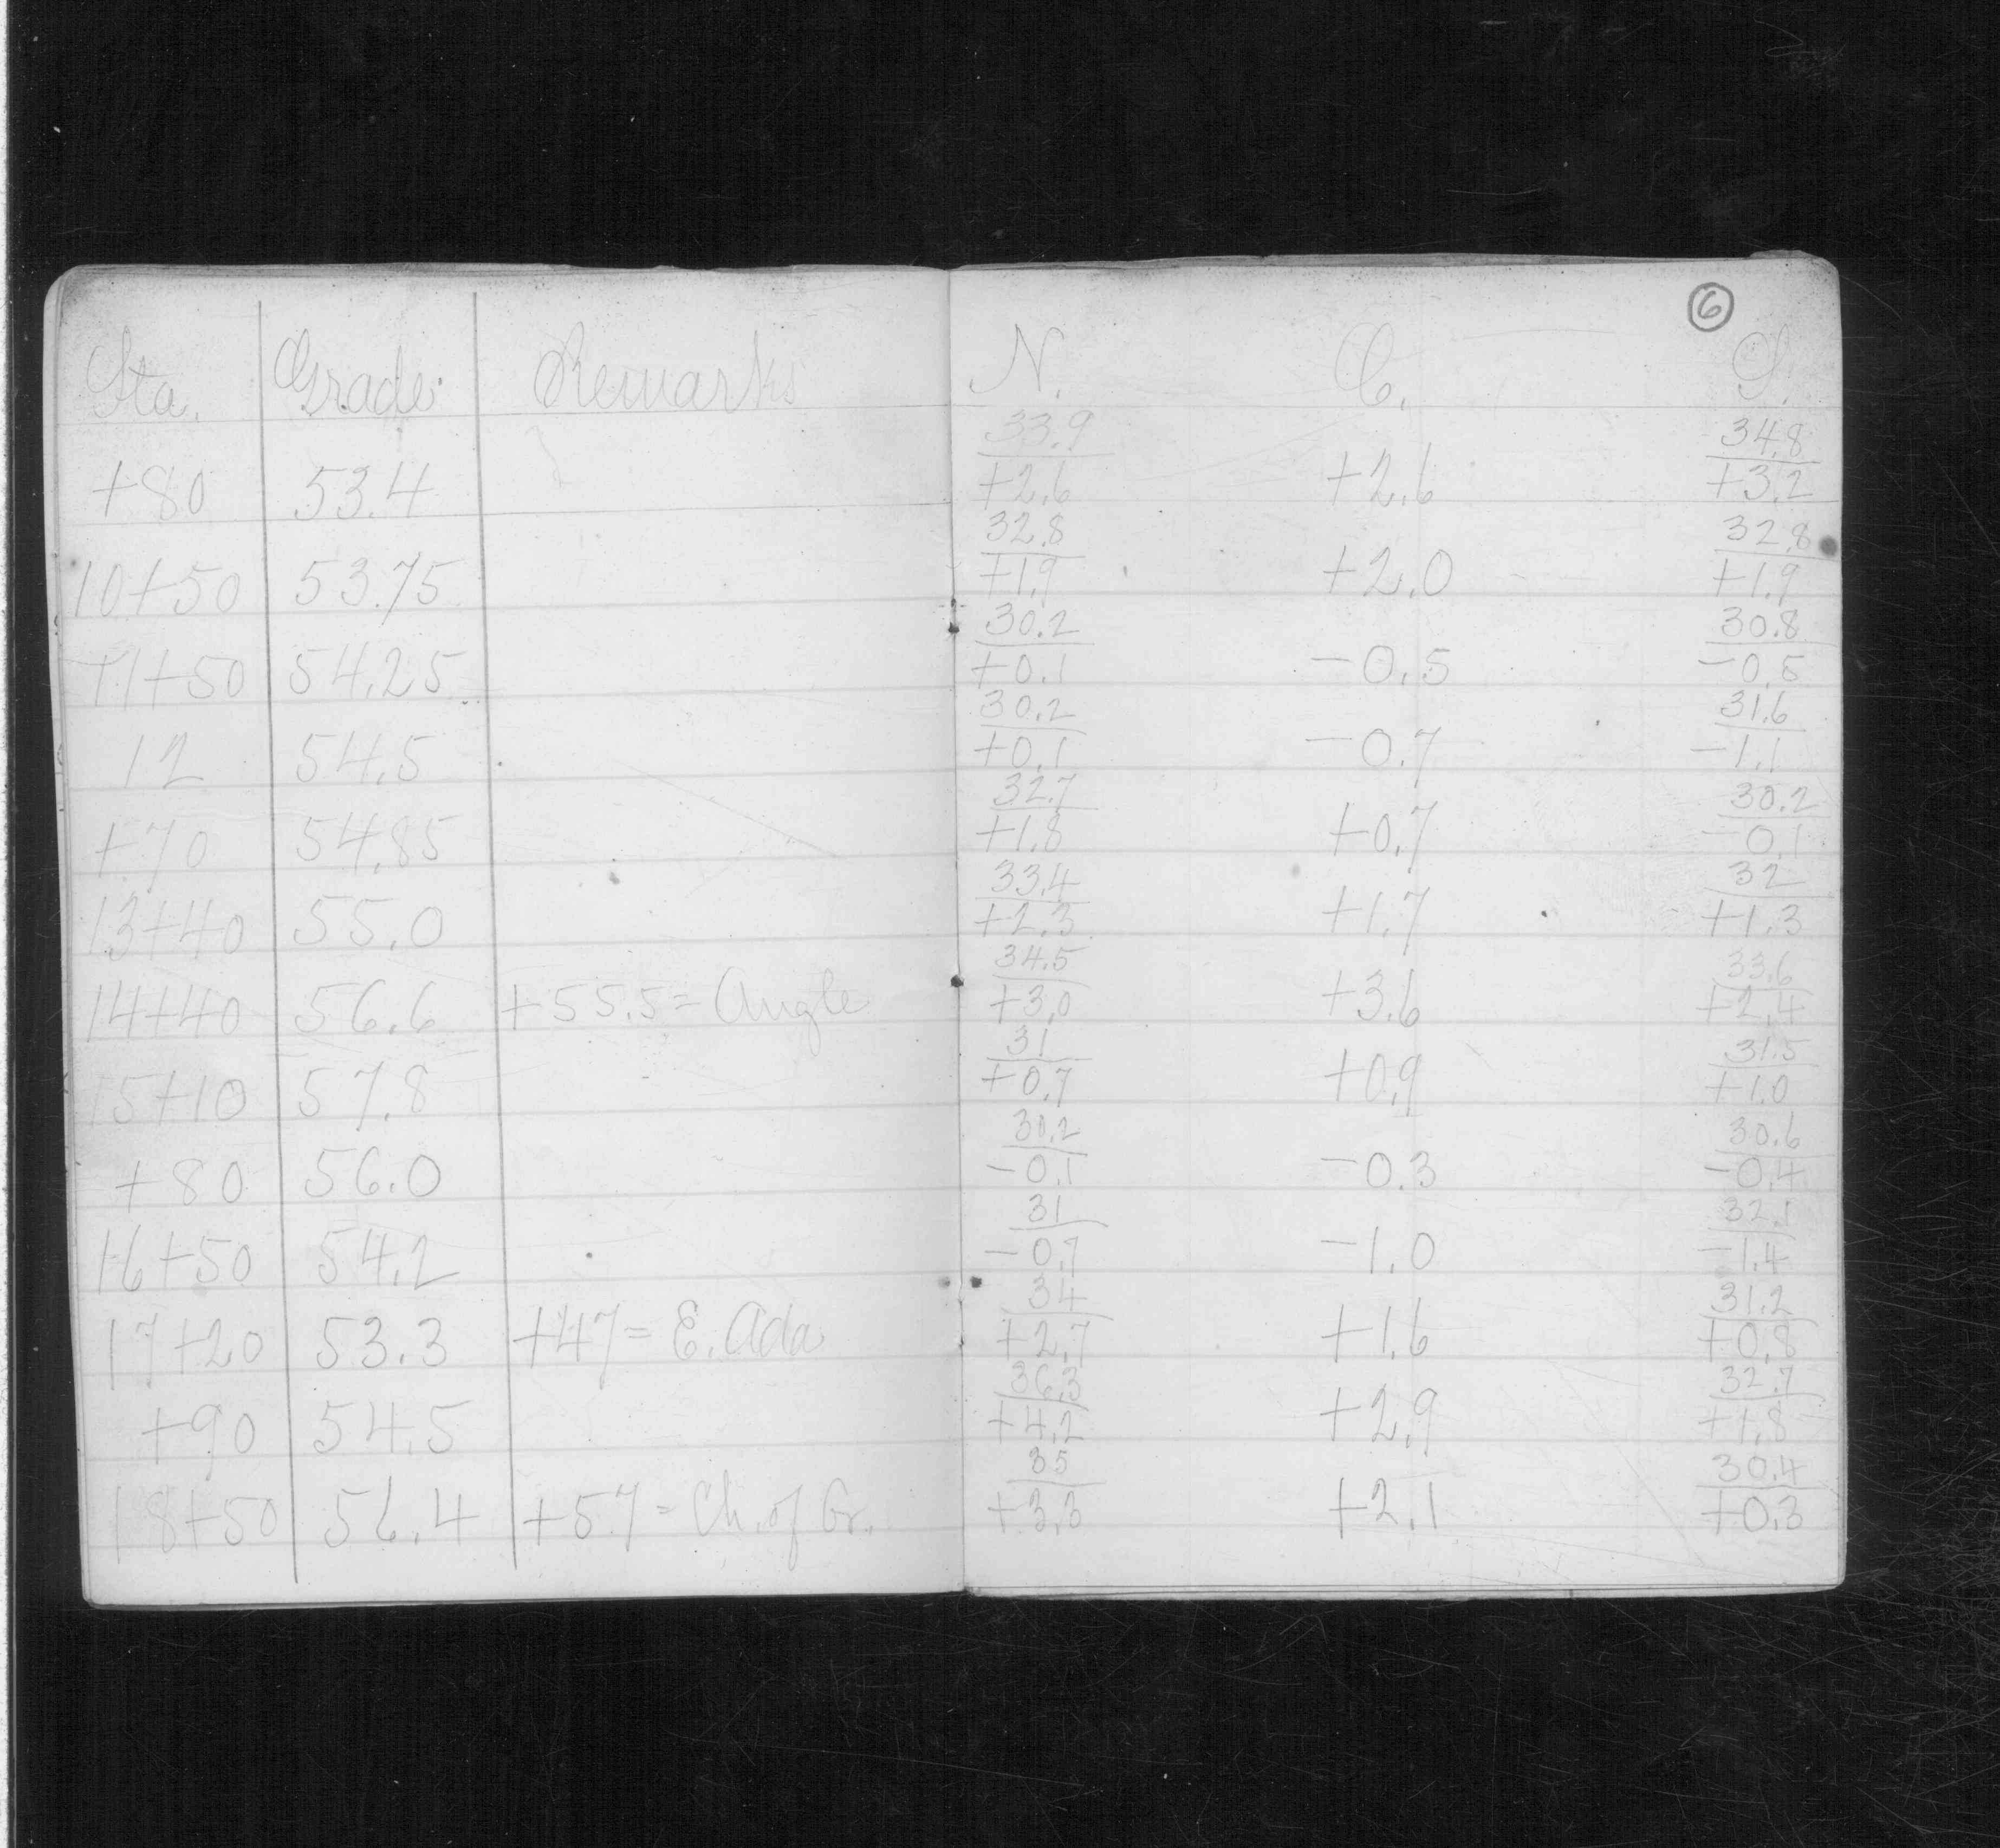 6
Sta. Grade Remarks N. C. S.
33.9 34.8
+80 53.4 +2.6 +2.6 +3.2
32.8 32.8
10+50 53.75 +1.9 +2.0 +1.9
30.2 30.8
11+50 54.25 +0.1 -0.5 -0.5
30.2 31.6
12 54.5 +0.1 -0.7 -1.1
32.7 30.2
+70 54.85 +1.8 +0.7 -0.1
33.4 32
13+40 55.0 +2.3 +1.7 +1.3
34.5 33.6
14+40 56.6 +55.5= Angle +3.0 +3.6 +2.4
31 31.5
15+10 57.8 +0.7 +0.9 +1.0
30.2 30.6
+80 56.0 -0.1 -0.3 -0.4
31 32.1
16+50 54.2 -0.7 -1.0 -1.4
34 31.2
17+20 53.3 +47= E. Ada +2.7 +1.6 +0.8
36.3 32.7
+90 54.5 +4.2 +2.9 +1.8
35 30.4
18+50 56.4 +57= Ch. of Gr. +3.3 +2.1 +0.3